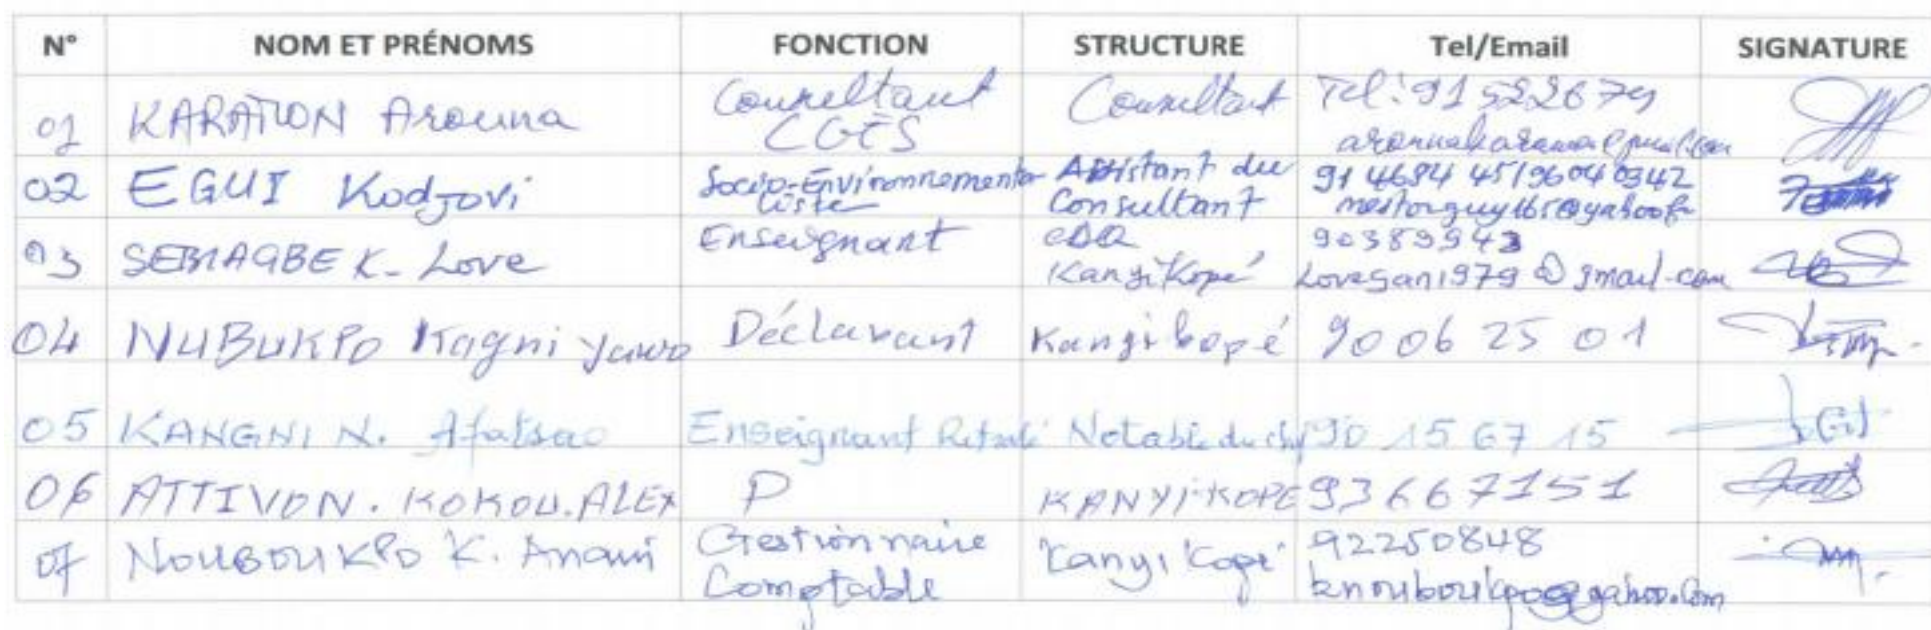 N° NOM ET PRÉNOMS FONCTION STRUCTURE Tel/Email SIGNATURE
01 KARATION Arouna Consultant CGES Consultant Tel: 91522679
02 EGUI Kodjovi Socio-Environnementaliste Assistant du Consultant 91 4684 45/96040342
03 SEMAGBE K. Love Enseignant CDQ KangiKopé 90389943 Lovegan1979@gmail.com
04 NUBUKPO Kagni Yawo Déclarant Kangikopé 90 06 25 01
05 KANGNI N. Afatsao Enseignant Retraité Notable du chef 90 15 67 15
06 ATTIVON. KOKOU. ALEX P KANYI-KOPE 93667151
07 NOUBOUKPO K. Anani Gestionnaire Comptable Kanyi Kopé 92250848